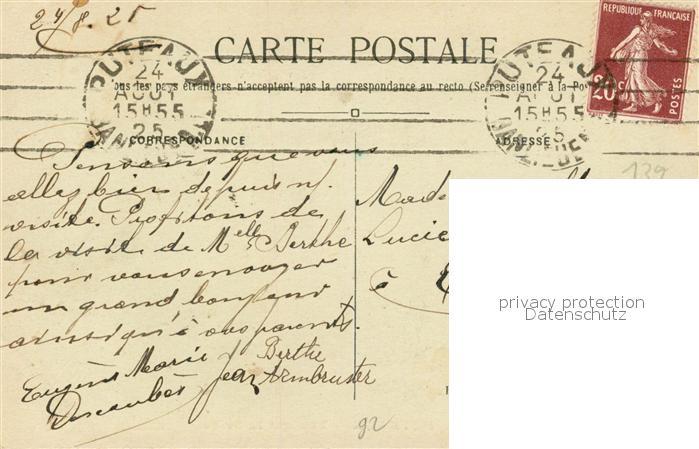 24/8.25
CARTE POSTALE
Tous les pays étrangers n'acceptent pas la correspondance au recto (Se renseigner à la Pos
CORRESPONDANCE
ADRESSE
PUTEAUX
24
AOUT
15H55
25
PUTEAUX
24
AOUT
15H55
25
REPUBLIQUE FRANÇAISE
20c
POSTES
139
Pensons que vous
allez bien depuis n/.
visite. Profitons de
la visite de Melle Berthe
pour vous envoyer
un grand bonjour
ainsi qu'à vos parents.
Eugène Marie Jean
Descombes
Berthe
Armbruster
Made
Lucie
à
92
privacy protection
Datenschutz